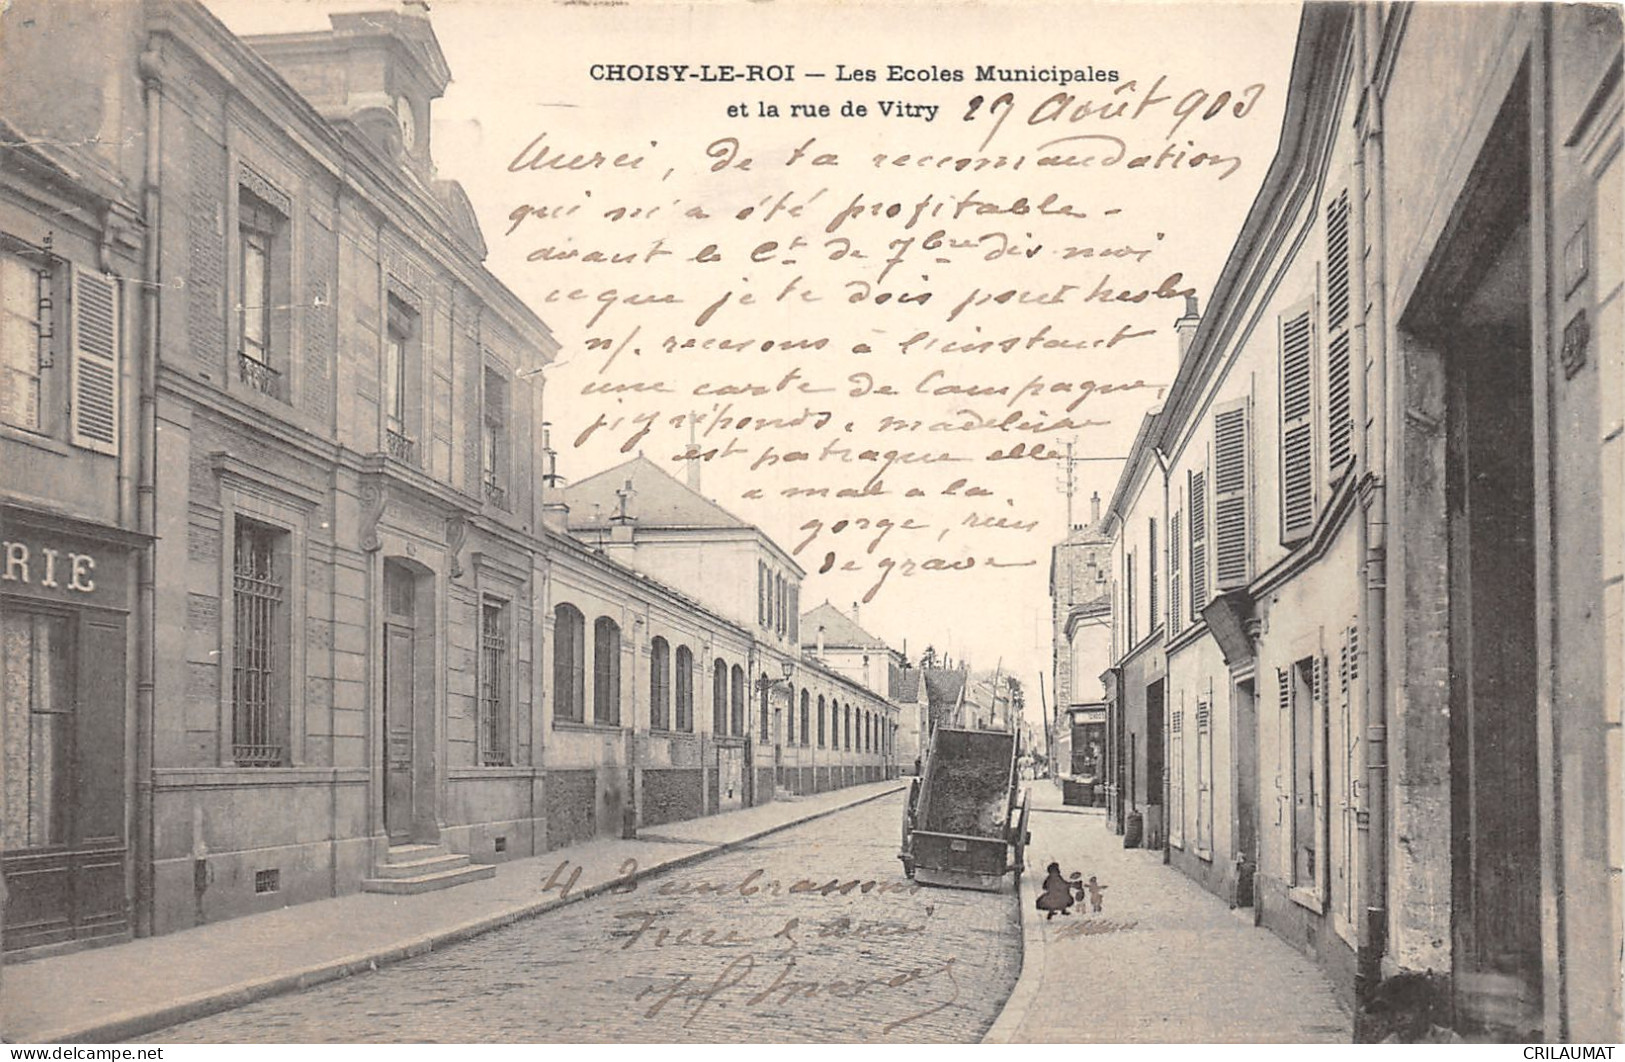 CHOISY-LE-ROI — Les Ecoles Municipales
et la rue de Vitry 29 Août 903
Merci, de ta recommandation
qui m'a été profitable -
avant le Ct de 7bre dis moi
ce que je te dois pour
n/. recevons à l'instant
une carte de Campagne,
j'y réponds. madeleine
est patraque elle
a mal a la
gorge, rien
de grave
4 embrassons
E. L. D. Paris.
RIE
CRILAUMAT